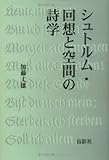 シュトルム・
回想と空間の
詩学
加藤丈雄
鳥影社